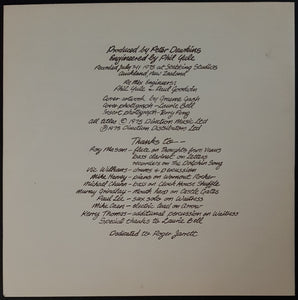 Produced by Peter Dawkins
Engineered by Phil Yule
Recorded July 1975 at Stebbing Studios
Auckland, New Zealand
Re Mix Engineers:
Phil Yule & Paul Goodwin
Cover artwork by Graeme
Cover photograph - Laurie Bell
Insert photograph - Terry
all titles © 1975 Direction Music Ltd
℗ 1975 Direction Distributors Ltd
Thanks to --
Roy Mason - flute on Thoughts four Years
bass clarinet on
recorders on The Dolphin Song
Vic Williams - drums & percussion
Mike Harvey - piano on Wormwood
Michael Chunn - bass on Clock House Shuffle
Murray Grindlay - mouth harp on Castle Gates
Paul Lee - sax solo on Waitress
Mike - electric lead on Arrow
Kerry Thomas - additional percussion on Waitress
Special thanks to Laurie Bell
Dedicated to Roger Jarrett